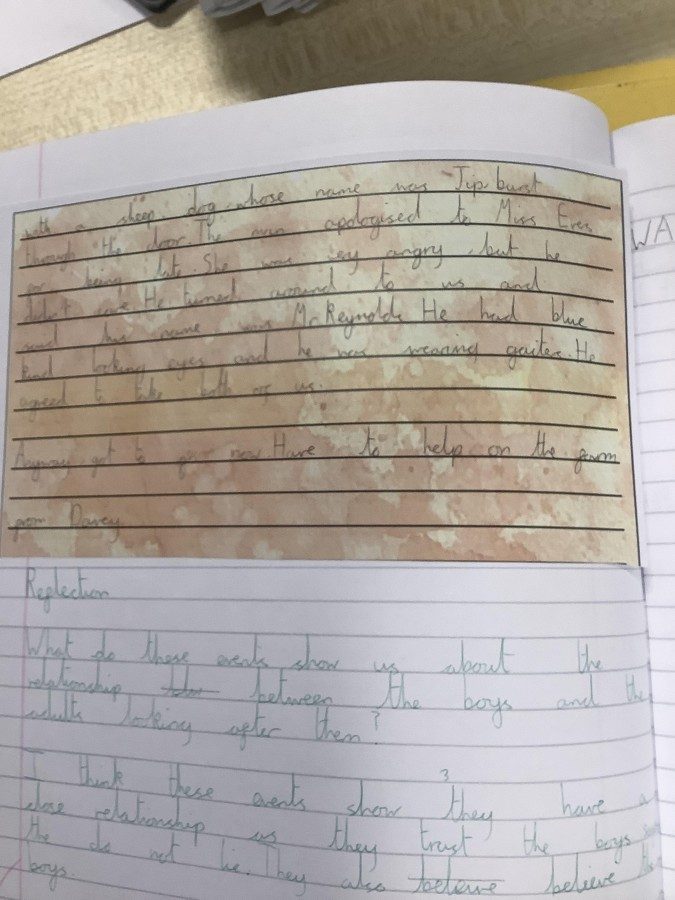 with a sheep dog whose name was Jip burst
through the door. The man apologised to Miss Evan
for being late. She was very angry but he
didn't care. He turned around to us and
said his name was Mr Reynolds He had blue
kind looking eyes and he was wearing gaiters. He
agreed to take both of us.
Anyway got to go now Have to help on the farm
from Davey
WA
Reflection
What do these events show us about the
relationship between the boys and the
adults looking after them?
3
I think these events show they have a
close relationship as they trust the boys
the do not lie. They also belie​ve believe the
boys.